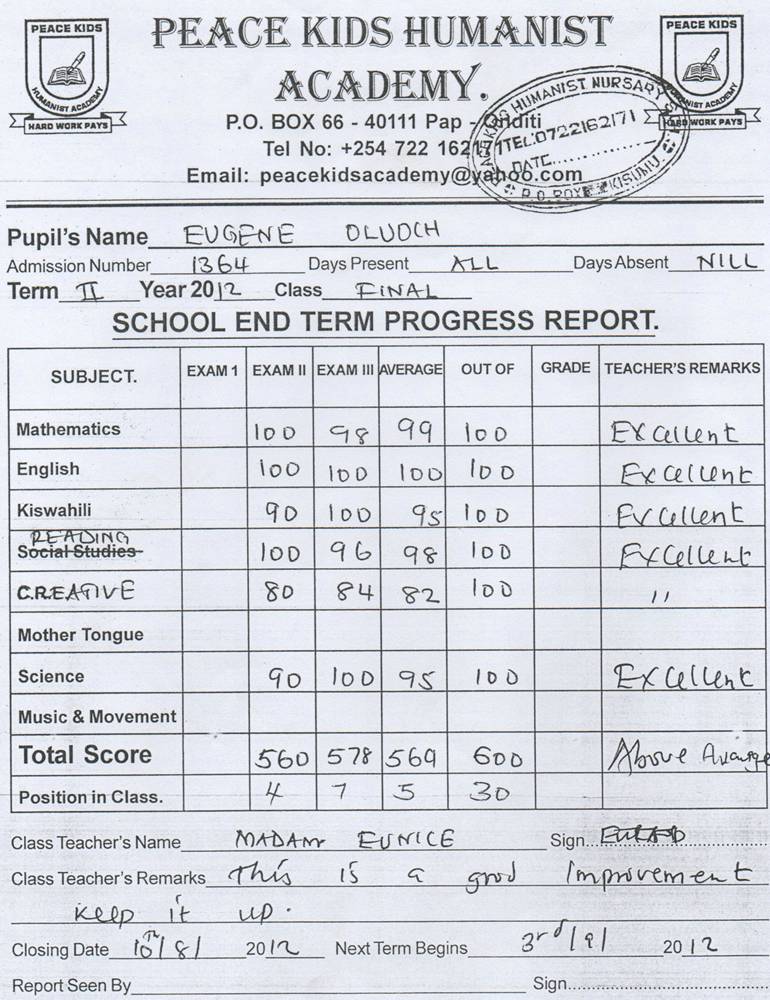 PEACE KIDS HUMANIST ACADEMY HARD WORK PAYS
PEACE KIDS HUMANIST
ACADEMY.
PEACE KIDS HUMANIST ACADEMY HARD WORK PAYS
P.O. BOX 66 - 40111 Pap - Onditi
Tel No: +254 722 162171
Email: peacekidsacademy@yahoo.com
HUMANIST NURSARY
TEL:0722162171
DATE..............
P.O. BOX KISUMU.
Pupil's Name EUGENE OLUOCH
Admission Number 1364 Days Present ALL Days Absent NILL
Term II Year 2012 Class FINAL
SCHOOL END TERM PROGRESS REPORT.
SUBJECT. EXAM 1 EXAM II EXAM III AVERAGE OUT OF GRADE TEACHER'S REMARKS
Mathematics 100 98 99 100 Excellent
English 100 100 100 100 Excellent
Kiswahili 90 100 95 100 Excellent
READING
Social Studies 100 96 98 100 Excellent
CREATIVE 80 84 82 100 ,,
Mother Tongue
Science 90 100 95 100 Excellent
Music & Movement
Total Score 560 578 569 600 Above Avarage
Position in Class. 4 7 5 30
Class Teacher's Name MADAM EUNICE Sign..
Class Teacher's Remarks This is a good Improvement
keep it up.
Closing Date 10th/8/ 2012 Next Term Begins 3rd/9/ 2012
Report Seen By Sign..............................